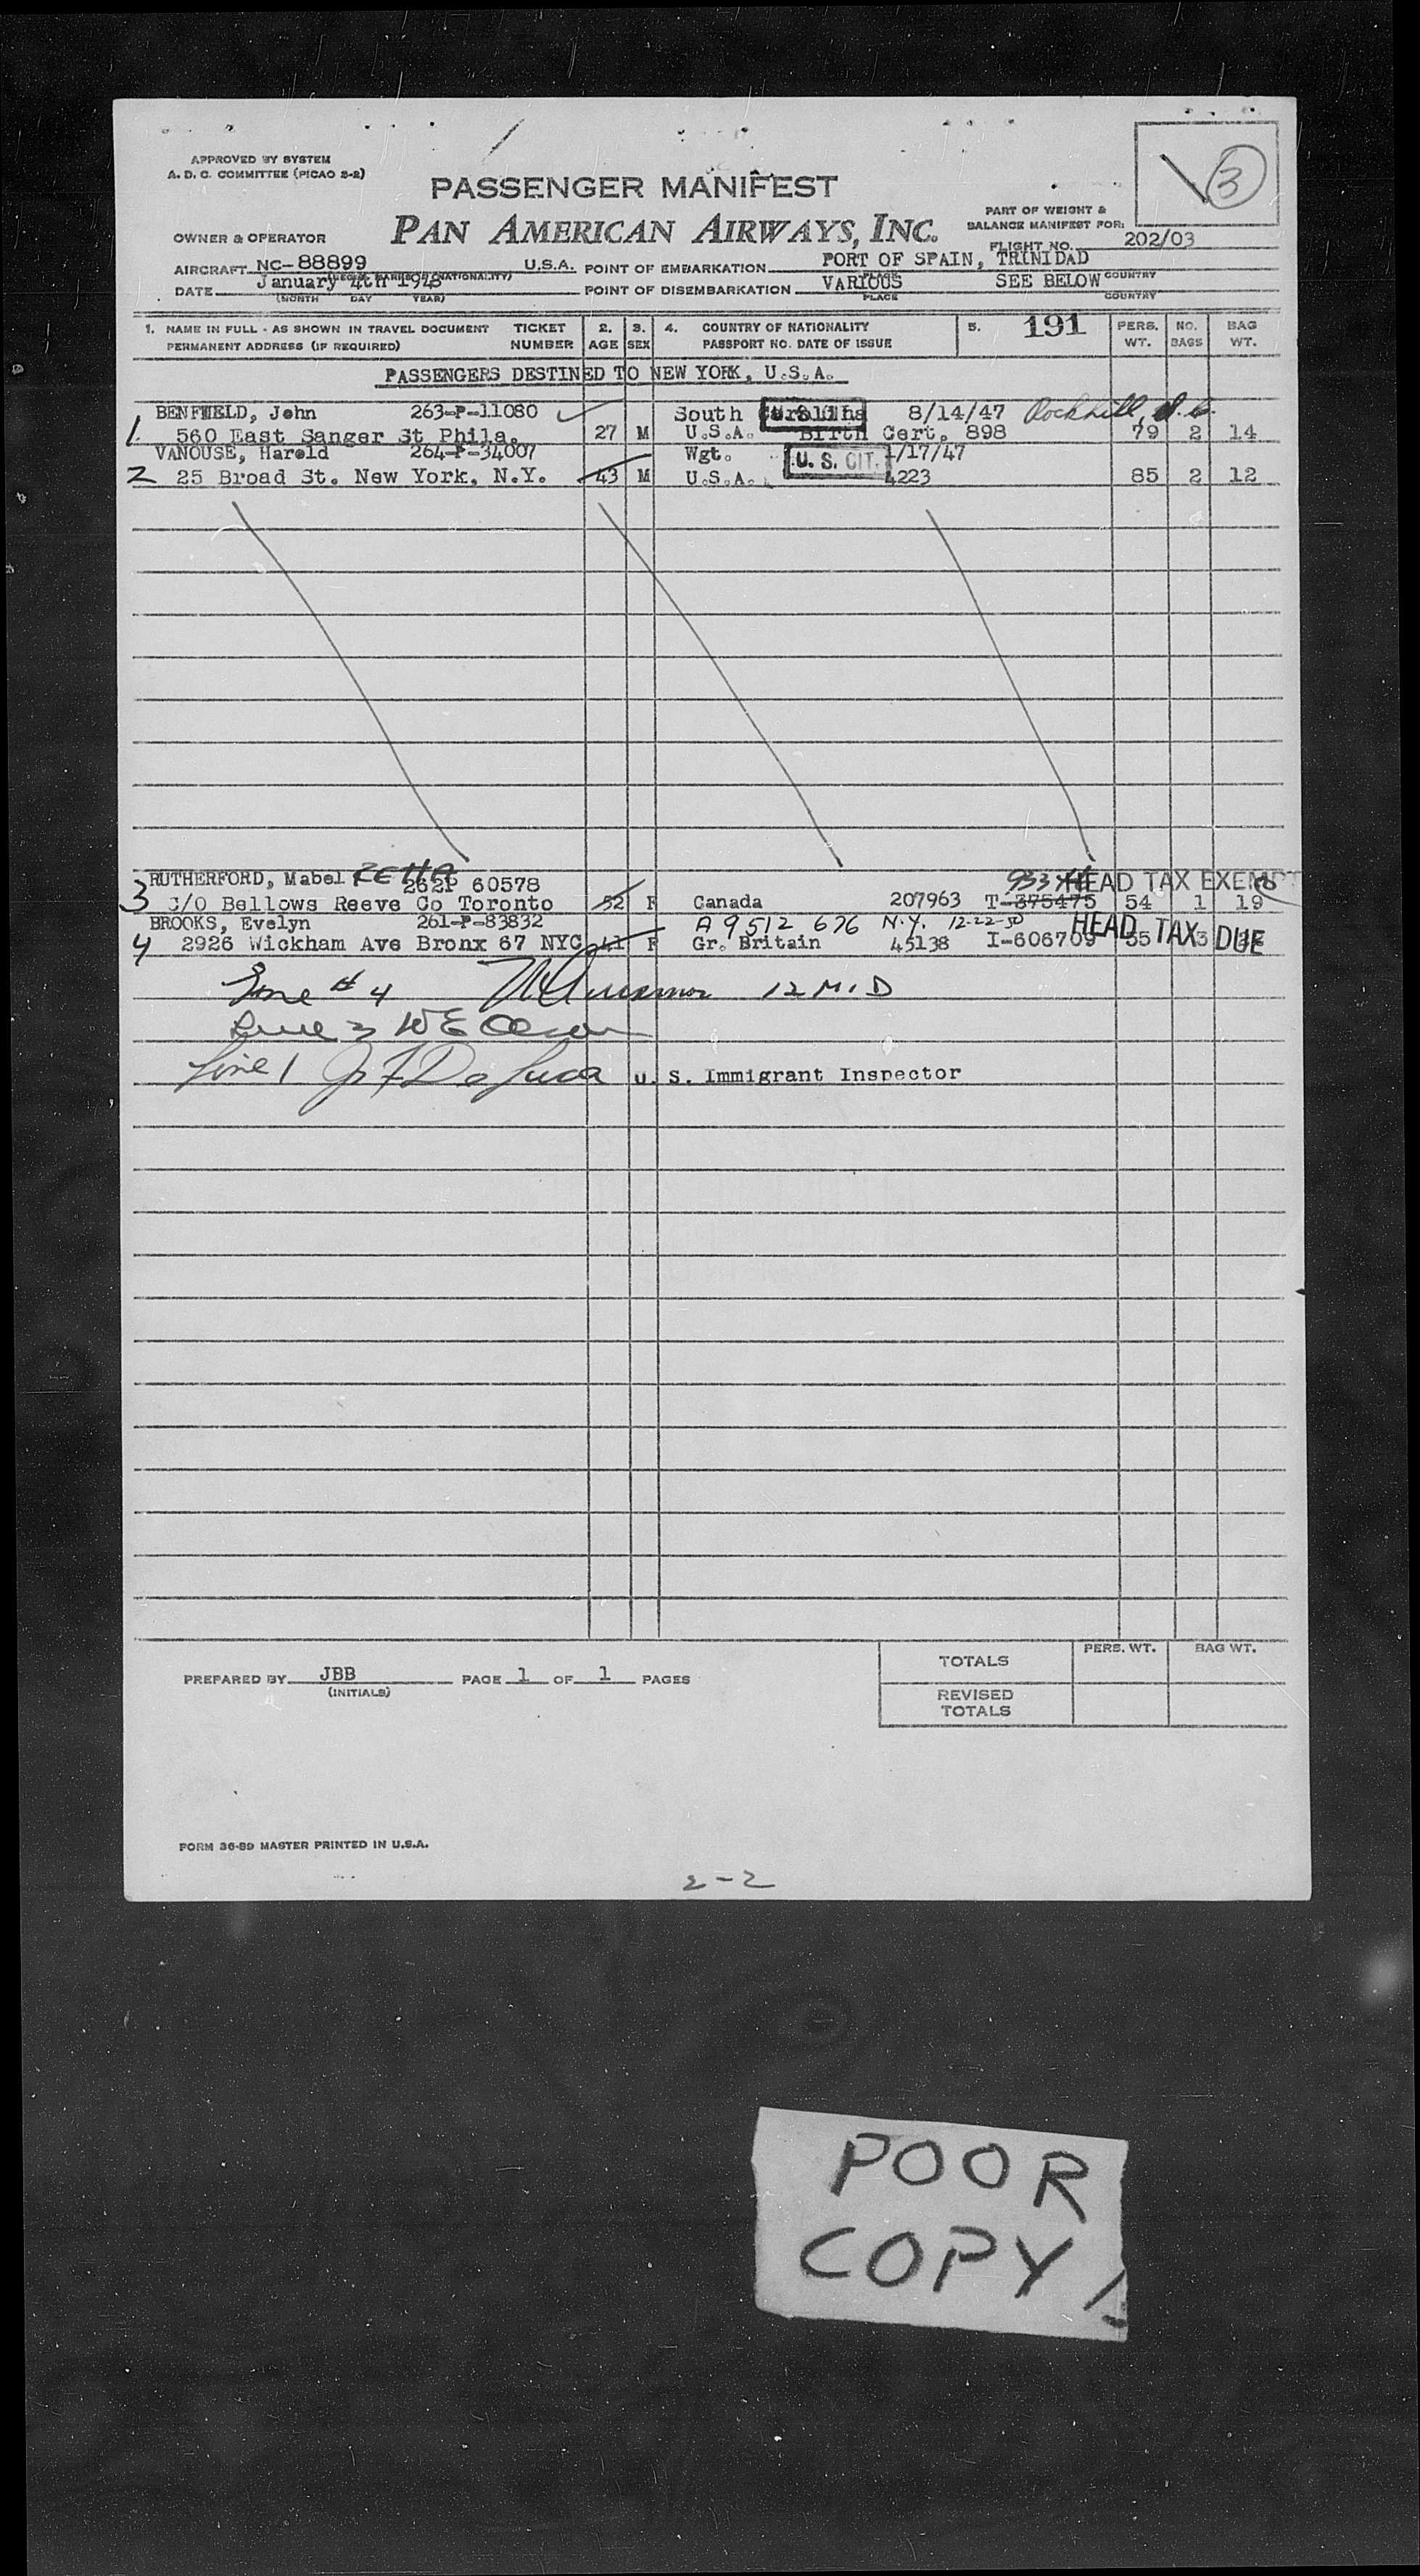 APPROVED BY SYSTEM
A. D. C. COMMITTEE (PICAO 2-2)
PASSENGER MANIFEST
3
PAN AMERICAN AIRWAYS, INC.
PART OF WEIGHT &
BALANCE MANIFEST FOR:
OWNER & OPERATOR
FLIGHT NO. 202/03
AIRCRAFT NC-88899 U.S.A. POINT OF EMBARKATION PORT OF SPAIN, TRINIDAD
PLACE COUNTRY
DATE January 4th 1948 POINT OF DISEMBARKATION VARIOUS SEE BELOW
(MONTH DAY YEAR) PLACE COUNTRY
1. NAME IN FULL - AS SHOWN IN TRAVEL DOCUMENT TICKET 2. 3. 4. COUNTRY OF NATIONALITY 5. 191 PERS. NO. BAG
PERMANENT ADDRESS (IF REQUIRED) NUMBER AGE SEX PASSPORT NO. DATE OF ISSUE WT. BAGS WT.
PASSENGERS DESTINED TO NEW YORK, U.S.A.
BENFIELD, John 263-P-11080 South Carolina 8/14/47 Rockhill, S.C.
1. 560 East Sanger St Phila. 27 M U.S.A. Birth Cert. 898 79 2 14
VANOUSE, Harold 264-P-34007 Wgt. U. S. CIT. 1/17/47
2 25 Broad St. New York, N.Y. 43 M U.S.A. 4223 85 2 12
RUTHERFORD, Mabel RETTA 262P 60578 HEAD TAX EXEMPT
3 C/O Bellows Reeve Co Toronto 52 F Canada 207963 T-375475 54 1 19
BROOKS, Evelyn 261-P-83832 A9512 676 N.Y. 12-22-50 HEAD TAX DUE
4 2926 Wickham Ave Bronx 67 NYC 41 F Gr. Britain 45138 I-606709 55 3
Line # 4 12 M.D
Line 3 W E Olson
Line 1 J F DeLuca U. S. Immigrant Inspector
TOTALS PERS. WT. BAG WT.
PREPARED BY JBB PAGE 1 OF 1 PAGES
(INITIALS)
REVISED
TOTALS
FORM 36-89 MASTER PRINTED IN U.S.A.
2-2
POOR
COPY